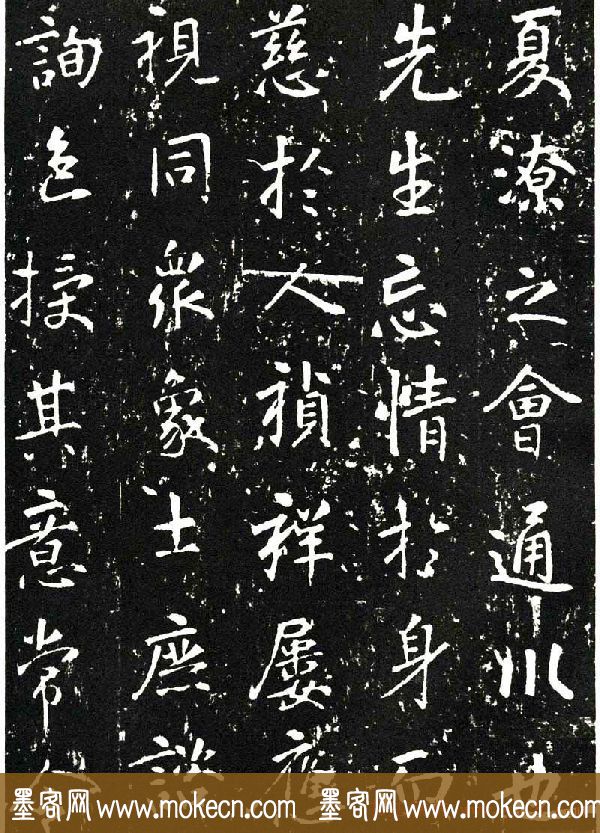 夏潦之會通川
先生忘情於身而
慈於人禎祥屢應
視同眾象士庶談
詢色授其意常
墨客网 www.mokecn.com 墨客网 www.mokecn.com